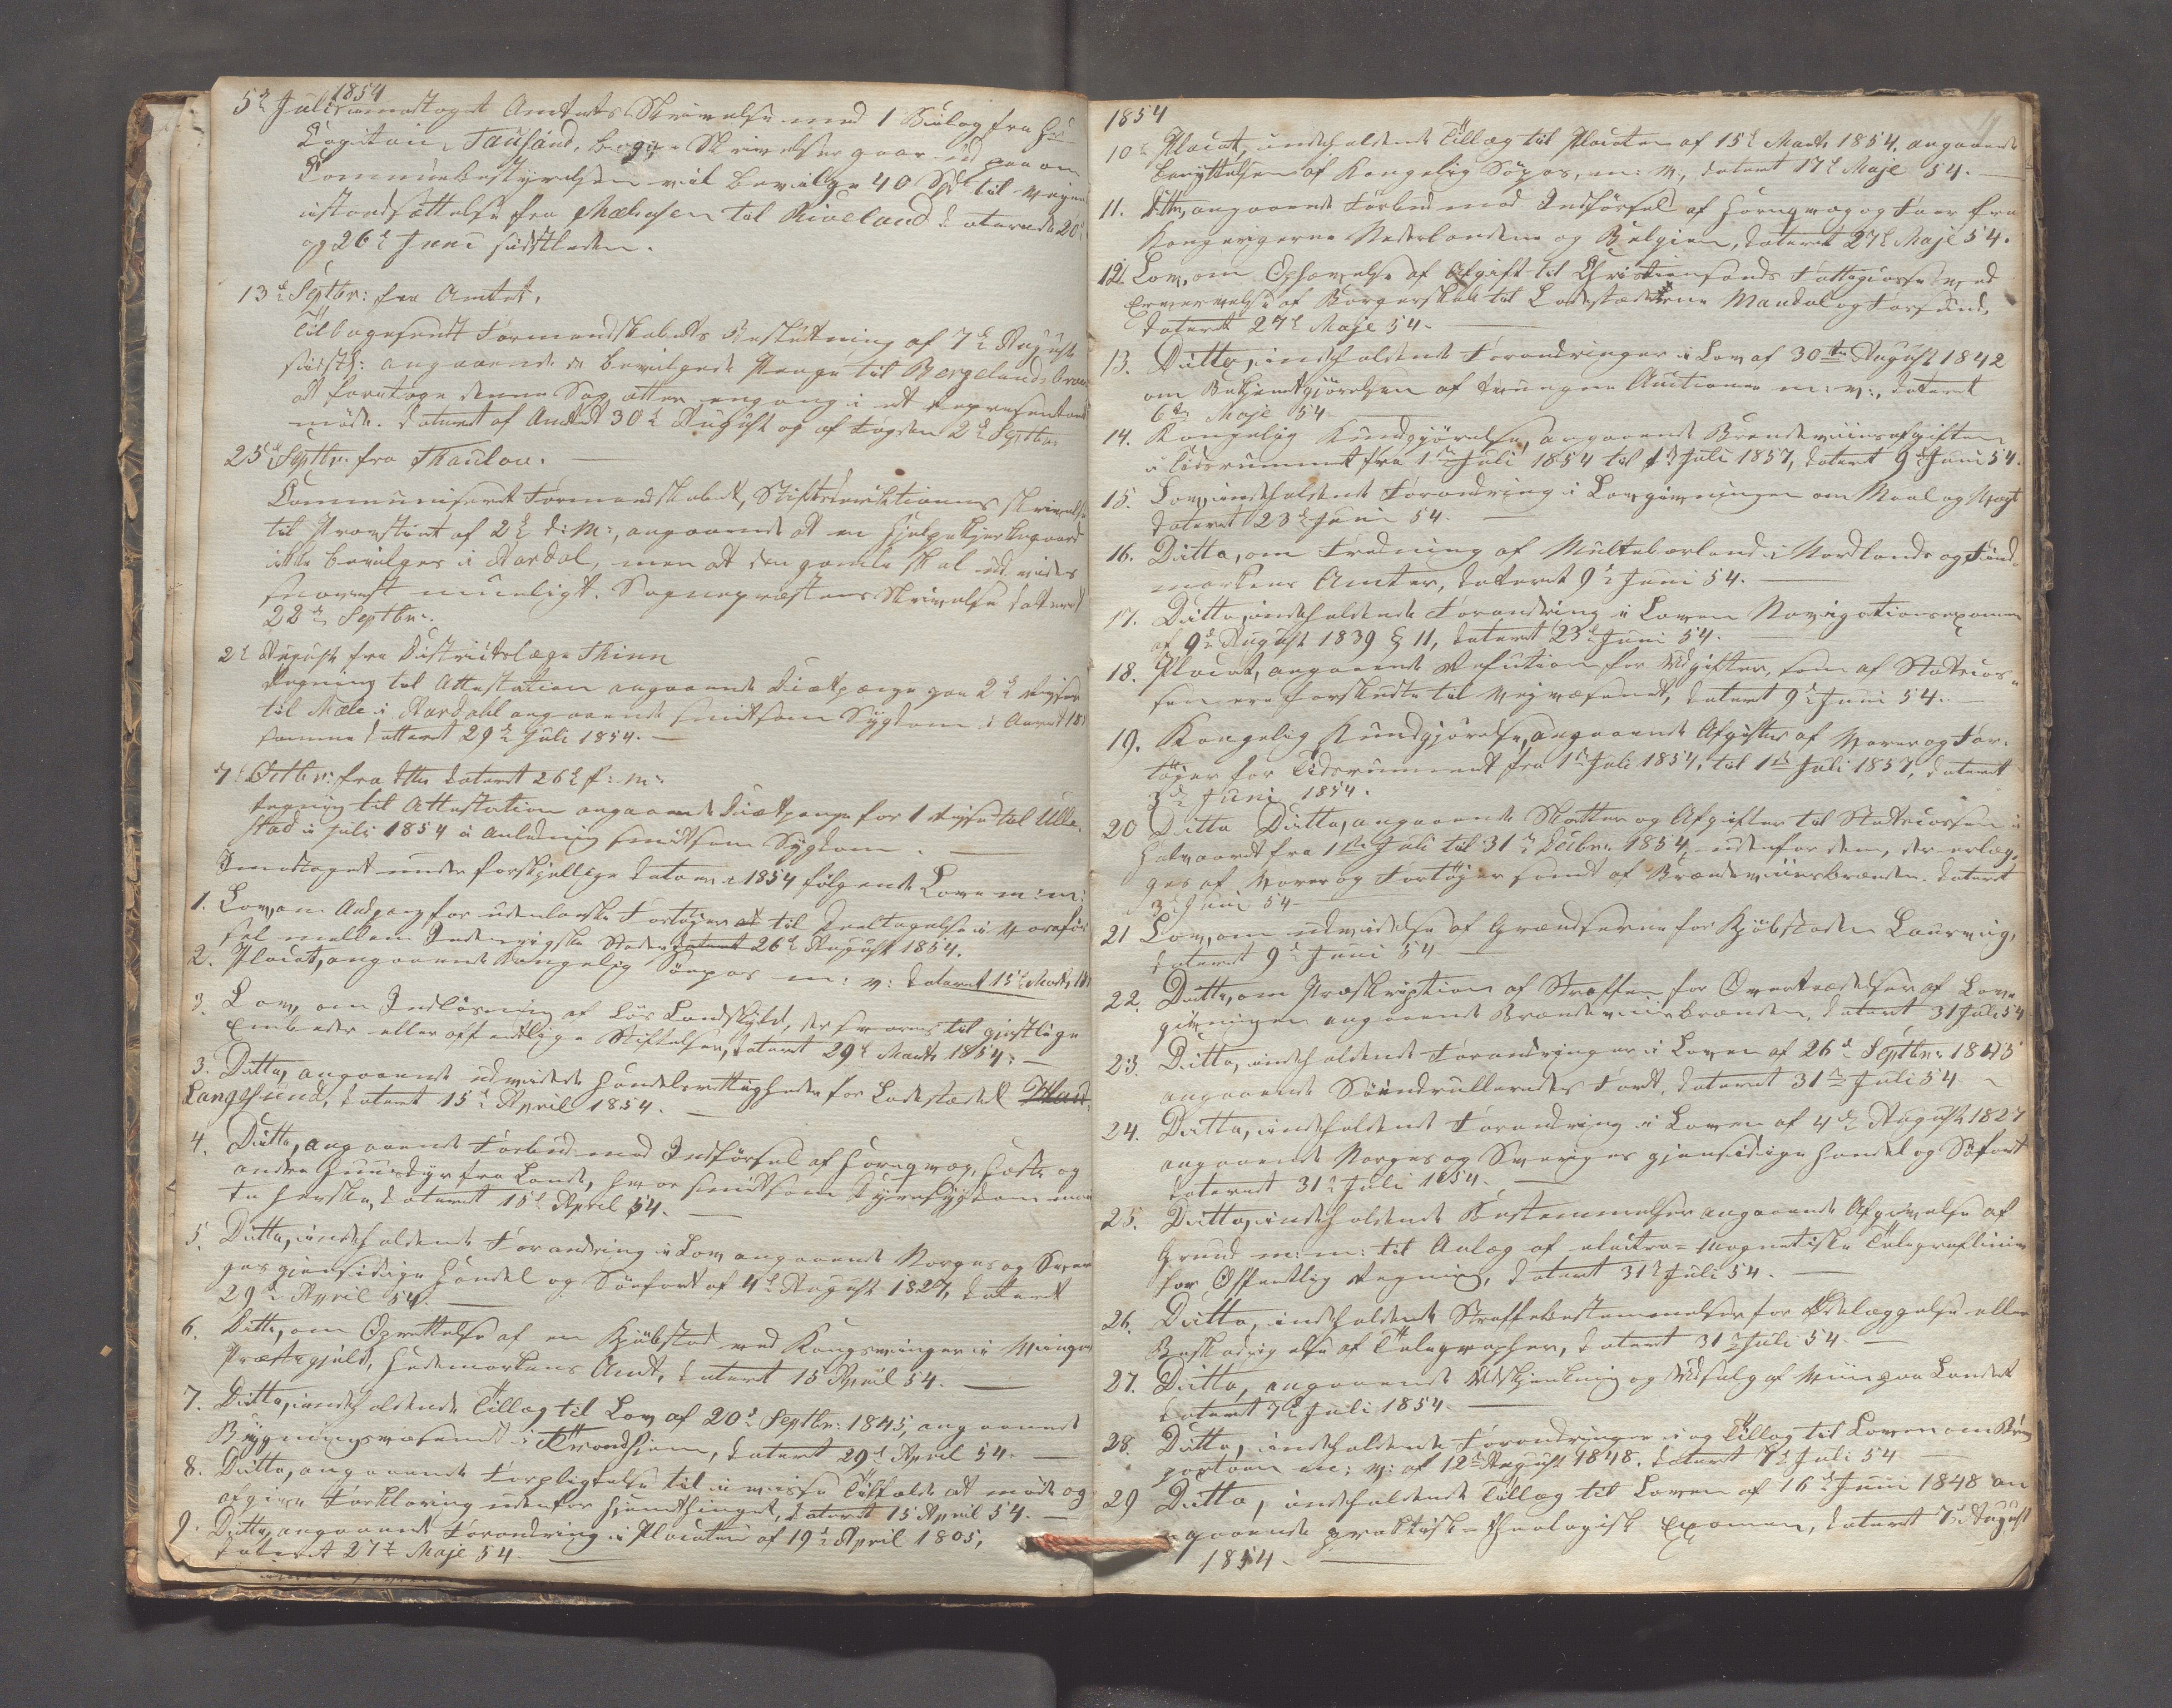 1854
5te Juli modtaget Amtets Skrivelse med 1 Bielag fra Hr
Capitain Fausand, begge Skrivelser gaar ud paa om
Communebestyrelsen vil bevilge 40 Spd til Veiens
istandsættelse fra Mæhusen til Riveland daterede 20
og 26de Juni sidstleden.
13de Septbr: fra Amtet,
Tilbagesendt Formandskabets Beslutning af 7de August
sidstl: angaaende de bevilgede Penge til Bergelands broen
at foretage denne Sag atter engang i et Repræsentant
møde. Dateret af Amtet 30te August og af Fogden 2de Septbr.
25de Septbr. fra Thaulow.
Communiseret Formandskabet, Stiftsdirektionens Skrivelse
til Provstiet af 2de d: M:, angaaende at en Hjelpekjerkegaard
ikke bevilges i Aardal, men at den gamle skal udvides
snarest mueligt. Sognepræstens Skrivelse dateret
22de Septbr.
2de August fra Districtslæge Thinn
Regning til Attestation angaaende Diætpenge paa 2de Reiser
til Mæle i Aardahl angaaende smitsom Sygdom i Aaret 18
samme datteret 29de Juli 1854.
7de Octbr: fra ditto dateret 26de f: m:
Regning til Attestation angaaende Diætpenge for 1 Reise til Ulle-
stad i Juli 1854 i Anledning smitsom Sygdom.
Imodtaget under forskjellige Datoer i 1854 følgende Love m: m:
1. Lov, om Adgang for udenlandske Fartøier at til Deeltagelse i Vareføre
sel mellem Indenrigske Steder dateret 26de August 1854.
2. Placat, angaaende Kongelig Søepas m: v: dateret 15de Marts 18
3. Lov, om Indløsning af Løs Landskyld, der svares til gjestlige
Embeder eller offentlige Stiftelser, dateret 29de Marts 1854.
3. Ditto, angaaende udvidede Handelsrettigheder for Ladestædet
Langesund, dateret 15de April 1854.
4. Ditto, angaaende Forbud mod Indførsel af Hornqvæg, Heste og
andre Huusdyr fra Lande, hvor smitsom Dyresygdom maa
te herske, dateret 15de April 54.
5. Ditto, indeholdende Forandring i Lov angaaende Norges og Sver
ges gjensidige Handel og Søefart af 4de August 1827, dateret
29de April 54.
6. Ditto, om Oprettelse af en Kjøbstad ved Kongsvinger i Vinger
Præstegjeld, Hedemarkens Amt, dateret 15 April 54.
7. Ditto, indeholdende Tillæg til Lov af 20de Septbr. 1845, angaaende
Bygningsvæsenet i Trondhjem, dateret 29de April 54.
8. Ditto, angaaende Forpligtelse til i visse Tilfælde at møde og
afgive Forklaring udenfor Hjemthinget, dateret 15 April 54.
9. Ditto, angaaende Forandring i Placaten af 19de April 1805,
dateret 27de Maje 54.
1854
10de Placat, indeholdende Tillæg til Placaten af 15de Marts 1854. angaaende
Benyttelsen af Kongelig Søpas, m: v:, dateret 17de Maje 54.
11. Ditto, angaaende Forbud mod Indførsel af Hornqvæg og Faar fra
Kongerigerne Nederlandene og Belgien, dateret 27de Maje 54.
12. Lov, om Ophævelse af Afgift til Christiansands Fattigcasse ved
Erhvervelse af Borgerskab til Ladestæderne Mandal og Farsund,
dateret 27de Maje 54.
13. Ditto, indeholdende Forandringer i Lov af 30te August 1842
om Bekjendtgjørelsen af tvungne Auctioner m: v:, dateret
6te Maje 54
14. Kongelig Kundgjørelse, angaaende Brendeviinsafgiften
i Tidsrummet fra 1ste Juli 1854 til 1ste Juli 1857, dateret 9de Juni 54.
15. Lov, indeholdende Forandring i Lovgivningen om Maal og Vægt
dateret 23de Juni 54.
16. Ditto, om Fredning af Multebærland i Nordlands og Find-
markens Amter, dateret 9de Juni 54.
17. Ditto, indeholdende Forandring i Loven Navigationsexamen
af 9de August 1839 § 11, dateret 23de Juni 54.
18. Placat, angaaende Refusion for Udgifter, som af Statscas-
sen ere forskudte til Veivæsenet, dateret 9de Juni 54.
19. Kongelig Kundgjørelse, angaaende Afgifter af Varer og Far-
tøjer for Tidsrummet fra 1ste Juli 1854, til 1ste Juli 1857, dateret
3de Juni 1854.
20 Ditto Ditto, angaaende Skatter og Afgifter til Statscassen i
Halvaaret fra 1ste Juli til 31te Decbr. 1854, udenfor dem, der erlæg-
ges af Varer og Fartøjer samt af Brændeviinsbrænden. dateret
3de Juni 54
21 Lov, om udvidelse af Grændserne for Kjøbstaden Laurvig,
dateret 9de Juni 54
22. Ditto, om Præskription af Straffen for Overtrædelser af Lov-
givningen angaaende Brændeviinsbrænden, dateret 31 Juli 54
23. Ditto, indeholdende Forandringer i Loven af 26de Septbr. 1845
angaaende Søindrulleredes Fart, dateret 31te Juli 54
24. Ditto, indeholdende Forandring i Loven af 4de August 1827
angaaende Norges og Sveriges gjensidige Handel og Søfart
dateret 31te Juli 1854.
25. Ditto, indeholdende Bestemmelser angaaende Afgivelse af
Grund m: m: til Anlæg af electro-magnetiske Telegraflinier
for Offentlig Regning, dateret 31te Juli 54.
26. Ditto, indeholdende Straffebestemmelser for Ødelæggelse eller
Beskadigelse af Telegrapher, dateret 31te Juli 54
27. Ditto, angaaende Udskjenkning og Udsalg af Viin paa Landet
dateret 7de Juli 1854.
28. Ditto, indeholdende Forandringer i og Tillæg til Loven om Brev
portoen m: v: af 12te August 1848. dateret 7de Juli 54
29 Ditto, indeholdende Tillæg til Loven af 16de Juni 1848 an
gaaende praktisk-theologisk Examen, dateret 7de August
1854.